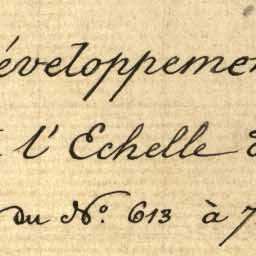 éveloppemen
l'Echelle
du No. 613 à 7